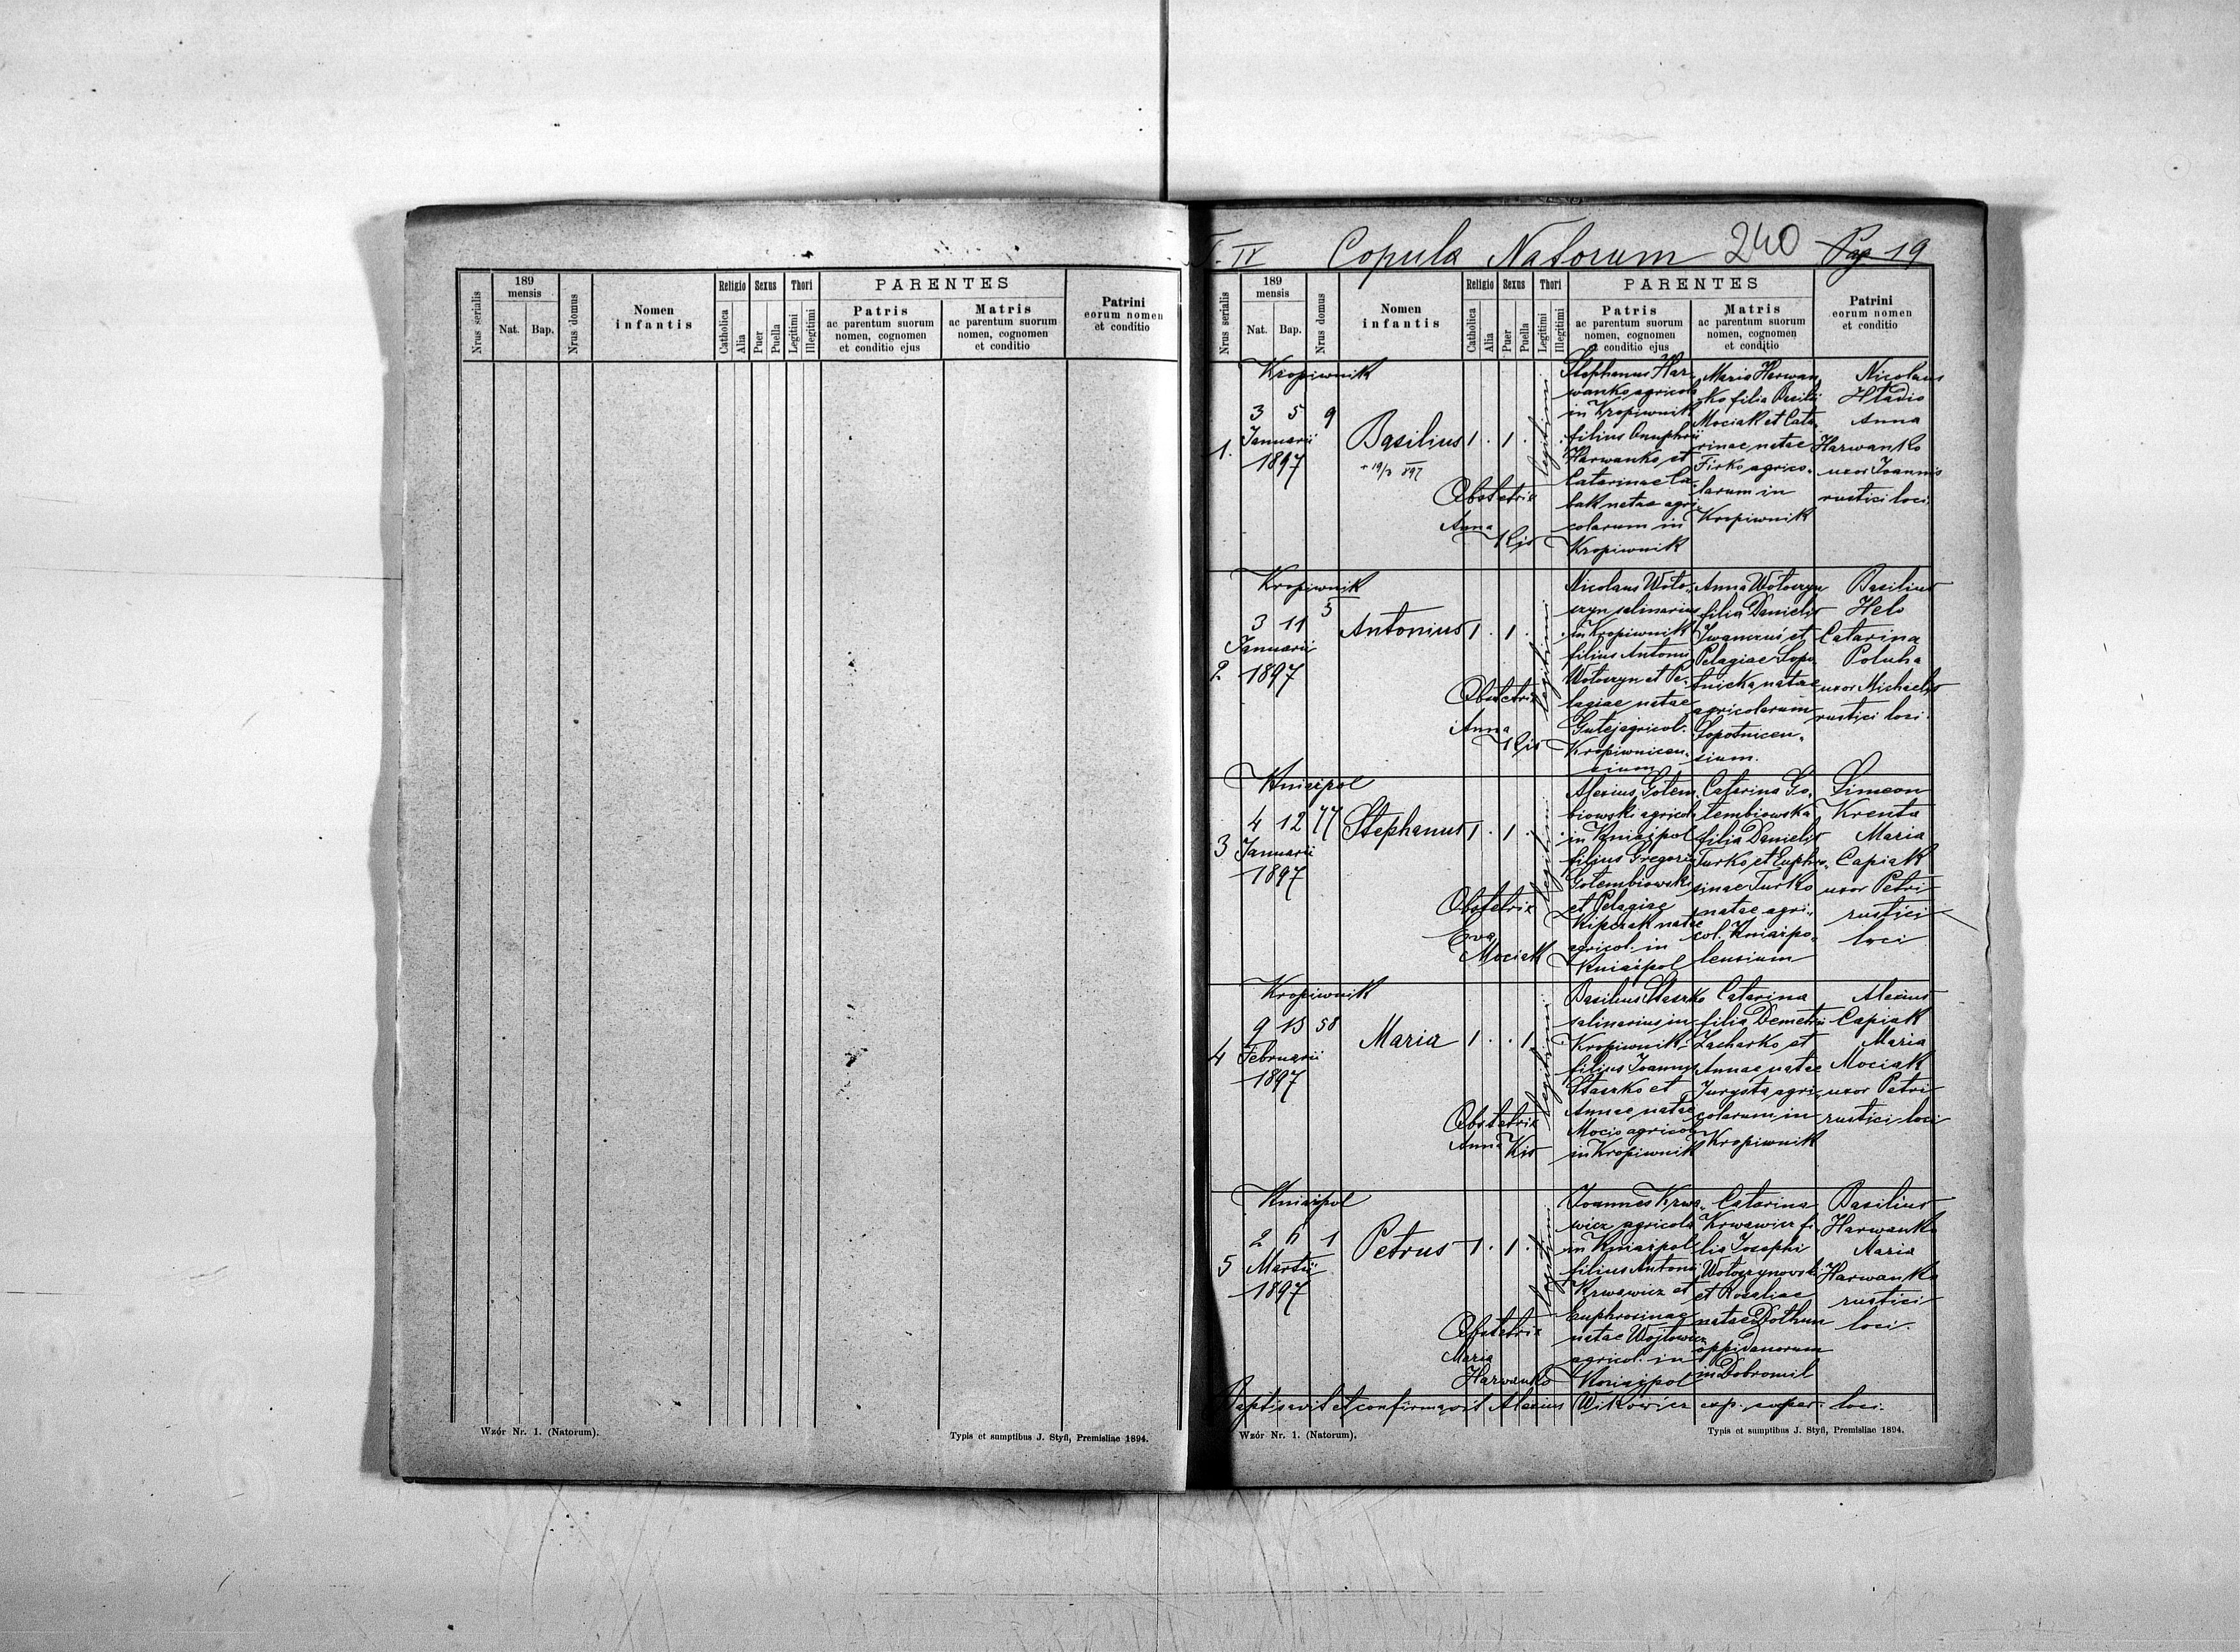 Nrus serialis
189
mensis
Nat.
Bap.
Nrus domus
Nomen
infantis
Religio
Catholica
Alia
Sexus
Puer
Puella
Thori
Legitimi
Illegitimi
PARENTES
Patris
ac parentum suorum
nomen, cognomen
et conditio ejus
Matris
ac parentum suorum
nomen, cognomen
et conditio
Patrini
eorum nomen
et conditio
Wzór Nr. 1. (Natorum).
Typis et sumptibus J. Styfi, Premisliae 1894.
T. IV Copula Natorum 240 Pag 19
Nrus serialis
189
mensis
Nat.
Bap.
Nrus domus
Nomen
infantis
Religio
Catholica
Alia
Sexus
Puer
Puella
Thori
Legitimi
Illegitimi
PARENTES
Patris
ac parentum suorum
nomen, cognomen
et conditio ejus
Matris
ac parentum suorum
nomen, cognomen
et conditio
Patrini
eorum nomen
et conditio
Kropiwnik
1.
3 5 9
Januarii
1897
Basilius
1 . 1 .
legitimi
Obstetrix
Anna
Kijs
Stephanus Har-
wanko agricola
in Kropiwnik
filius Onuphrii
Harwanko et
Catarinae Ca-
bak natae agri-
colarum in
Kropiwnik
Maria Harwan-
ko filia Basilii
Mociak et Cata-
rinae natae
Firko agrico-
larum in
Kropiwnik
Nicolaus
Hładio
Anna
Harwanko
uxor Joannis
rustici loci.
Kropiwnik
2
3 11 5
Januarii
1897
Antonius
1 . 1 .
legitimi
Obstetrix
Anna
Kijs
Nicolaus Woło-
szyn salinarius
in Kropiwnik
filius Antonii
Wołoszyn et Pe-
lagiae natae
Gutej agricol.
Kropiwnicen-
sium
Anna Wołoszyn
filia Danielis
Iwanczuś et
Pelagiae Łopu-
śnicka natae
agricolarum
Łopotnicen-
sium.
Basilius
Helo
Catarina
Poluha
uxor Michaelis
rustici loci.
Kniaźpol
3
4 12 77
Januarii
1897
Stephanus
1 . 1 .
legitimi
Obstetrix
Eva
Mociak
Alexius Gołem-
biowski agricol.
in Kniaźpol
filius Gregorii
Gołembiowski
et Pelagiae
Kipczak natae
agricol. in
Kniaźpol
Catarina Go-
łembiowska
filia Danielis
Turko et Euphro-
sinae Turko
natae agri-
col. Kniaźpo-
lensium
Simeon
Krenta
Maria
Capiak
uxor Petri
rustici
loci
Kropiwnik
4
9 13 58
Februarii
1897
Maria
1 . . 1
legitimi
Obstetrix
Anna Kijs
Basilius Staszko
salinarius in
Kropiwnik
filius Joannis
Staszko et
Annae natae
Mocio agricol.
in Kropiwnik
Catarina
filia Demetrii
Zacharko et
Annae natae
Jurysta agri-
colarum in
Kropiwnik
Alexius
Capiak
Maria
Mociak
uxor Petri
rustici loci
Kniaźpol
5
2 6 1
Martii
1897
Petrus
1 . 1 .
legitimi
Obstetrix
Maria
Harwanko
Joannes Krwa-
wicz agricola
in Kniaźpol
filius Antonii
Krwawicz et
Euphrosinae
natae Wojtowicz
agricol. in
Kniaźpol
Catarina
Krwawicz fi-
lia Josephi
Wołoszynowski
et Rosaliae
natae Dothun
oppidanorum
in Dobromil
Basilius
Harwanko
Maria
Harwanko
rustici
loci.
Baptisavit et confirmavit Alexius Witowicz exp. loci.
Wzór Nr. 1. (Natorum).
Typis et sumptibus J. Styfi, Premisliae 1894.